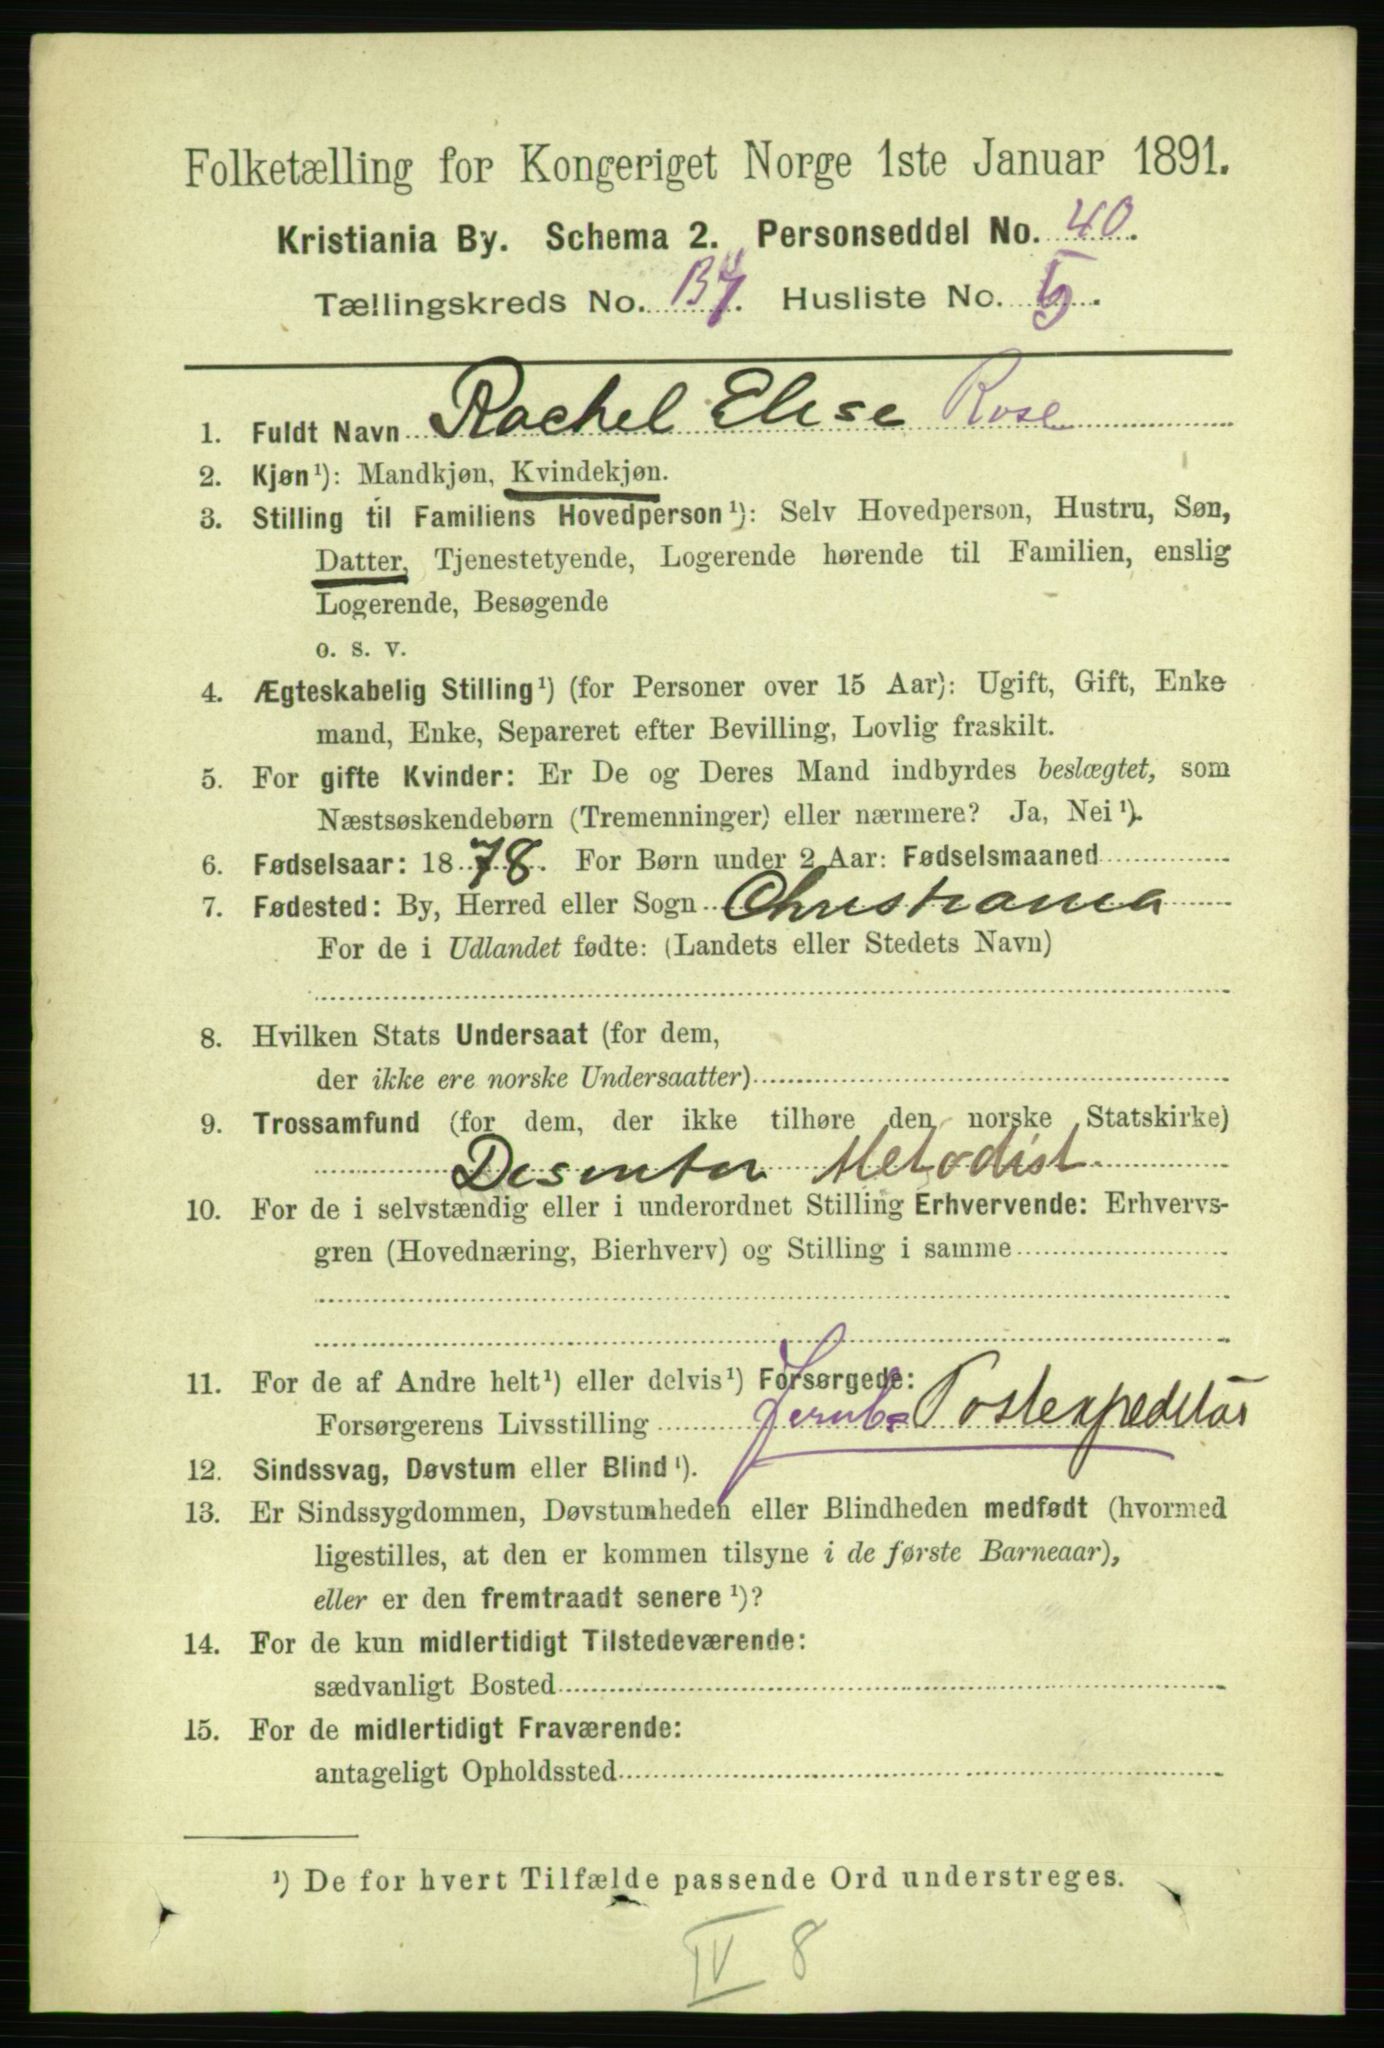 Folketælling for Kongeriget Norge 1ste Januar 1891.
Kristiania By. Schema 2. Personseddel No. 40.
Tællingskreds No. Husliste No.
1. Fuldt Navn Rachel Elise Rose
2. Kjøn¹): Mandkjøn, Kvindekjøn.
3. Stilling til Familiens Hovedperson¹): Selv Hovedperson, Hustru, Søn,
Datter, Tjenestetyende, Logerende hørende til Familien, enslig
Logerende, Besøgende
o. s. v.
4. Ægteskabelig Stilling¹) (for Personer over 15 Aar): Ugift, Gift, Enke
mand, Enke, Separeret efter Bevilling, Lovlig fraskilt.
5. For gifte Kvinder: Er De og Deres Mand indbyrdes beslægtet, som
Næstsøskendebørn (Tremenninger) eller nærmere? Ja, Nei¹).
6. Fødselsaar: 1878. For Børn under 2 Aar: Fødselsmaaned
7. Fødested: By, Herred eller Sogn Christiania
For de i Udlandet fødte: (Landets eller Stedets Navn)
8. Hvilken Stats Undersaat (for dem,
der ikke ere norske Undersaatter)
9. Trossamfund (for dem, der ikke tilhøre den norske Statskirke)
Desenter Metodist
10. For de i selvstændig eller i underordnet Stilling Erhvervende: Erhvervs-
gren (Hovednæring, Bierhverv) og Stilling i samme
11. For de af Andre helt¹) eller delvis¹) Forsørgede:
Forsørgerens Livsstilling Jernb. Postexpeditør
12. Sindssvag, Døvstum eller Blind¹).
13. Er Sindssygdommen, Døvstumheden eller Blindheden medfødt (hvormed
ligestilles, at den er kommen tilsyne i de første Barneaar),
eller er den fremtraadt senere¹)?
14. For de kun midlertidigt Tilstedeværende:
sædvanligt Bosted
15. For de midlertidigt Fraværende:
antageligt Opholdssted
¹) De for hvert Tilfælde passende Ord understreges.
IV 8